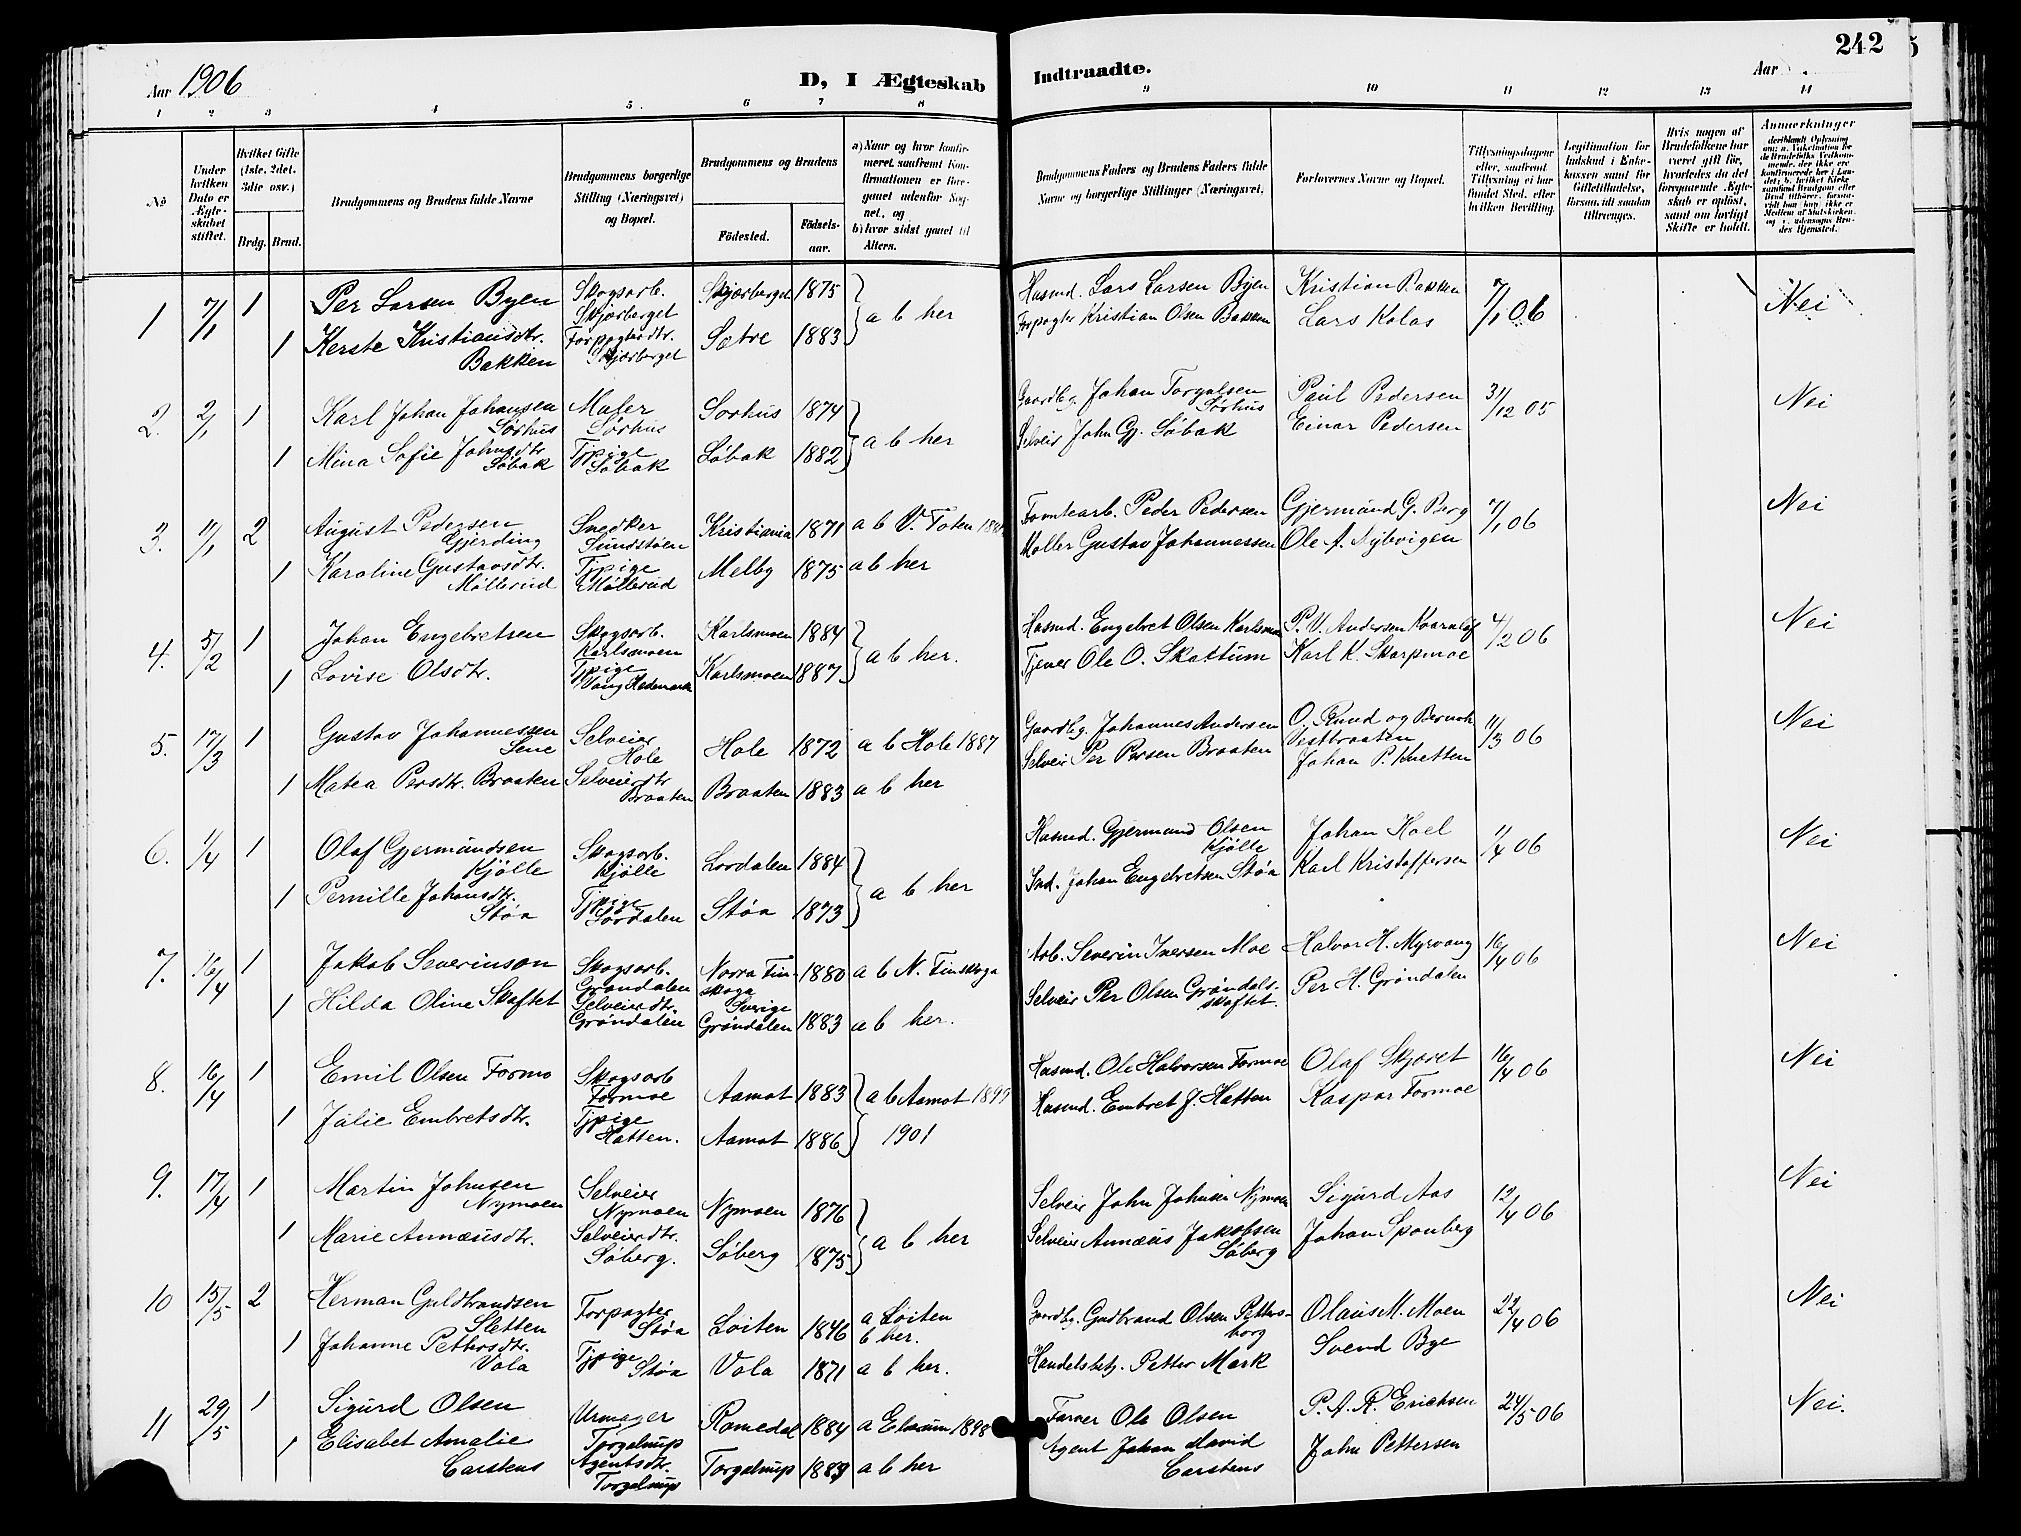 242
Aar 1906
D, I Ægteskab Indtraadte.
Aar
1 2 3 4 5 6 7 8 9 10 11 12 13 14
No
Under hvilken Dato er Ægteskabet stiftet.
Hvilket Gifte (1ste, 2det, 3die osv.)
Brdg. Brud.
Brudgommens og Brudens fulde Navne
Brudgommens borgerlige Stilling (Næringsvei) og Bopæl.
Brudgommens og Brudens
Fødested. Fødselsaar.
a) Naar og hvor konfirmeret, saafremt Konfirmationen er foregaaet udenfor Sognet, og
b) hvor sidst gaaet til Alters.
Brudgommens Faders og Brudens Faders fulde Navne og borgerlige Stillinger (Næringsvei).
Forlovernes Navne og Bopæl.
Tillysningsdagene eller, saafremt Tillysning ei har fundet Sted, efter hvilken Bevilling.
Legitimation for Indskud i Enkekassen samt for Giftetilladelse, forsaavidt saadan tiltrænges.
Hvis nogen af Brudefolkene har været gift før, hvorledes da det foregaaende Ægteskab er opløst, samt om lovligt Skifte er holdt.
Anmærkninger
1 7/1 1 Per Larsen Byen Skogsarb. Skjærberget Skjærberget 1875 a b her Husmd. Lars Larsen Byen Kristian Bakken 7/1 06 Nei
1 Kerste Kristiansdtr. Bakken Forpagterdtr. Skjærberget Sætre 1883 Forpagter Kristian Olsen Bakken Lars Kolos
2. 2/1 1 Karl Johan Johansen Sørhus Maler Sørhus Sørhus 1874 a b her Gaardbg. Johan Torgalsen Sørhus Paul Pedersen 31/12 05 Nei
1 Mina Sofie Johnsdtr. Søbak Tjpige Søbak Søbak 1882 Selveir John Gj. Søbak Einar Pedersen
3. 11/1 2 August Pedersen Gjerding Snedker Sundstøen Kristiania 1871 a b V. Toten Tomtearb. Peder Pedersen Gjermund G. Berg 7/1 06 Nei
1 Karoline Gustavsdtr. Møllerud Tjpige Møllerud Melby 1875 a b her Møller Gustav Johannessen Ole A. Nybvigen
4. 5/2 1 Johan Engebretsen Skogsarb. Karlsmoen Karlsmoen 1884 a b her. Husmd. Engebret Olsen Karlsmoen P. V. Andersen 4/2 06 Nei
1 Lovise Olsdtr. Tjpige Vang Hedemark Karlsmoen 1887 Tjener Ole O. Skattum Karl K. Skarpmoe
5. 17/3 1 Gustav Johannessen Sene Selveier Hole Hole 1872 a b Hole 1887 Gaardbg. Johannes Andersen O. Rund og Bernh. Vestbraaten 11/3 06 Nei
1 Matea Persdtr. Braaten Selveierdtr Braaten Braaten 1883 a b her Selveir Per Persen Braaten Johan P. Knetten
6. 1/4 1 Olaf Gjermundsen Kjølle Skogsarb. Kjølle Lørdalen 1884 a b her Husmd. Gjermund Olsen Kjølle Johan Hoel 1/4 06 Nei
1 Pernille Johansdtr. Støa Tjpige Lørdalen Støa 1873 Ind. Johan Engebretsen Støa Karl Kristoffersen
7. 16/4 1 Jakob Severinson Skogsarb. Grøndalen Norra Finskoga Sverige 1880 a b N. Finskoga Arb. Severin Iversen Moe Halvor H. Myrvang 16/4 06 Nei
1 Hilda Oline Skaftet Selveierdtr. Grøndalen Grøndalen 1883 a b her. Selveir Per Olsen Grøndalsskaftet. Per H. Grøndalen
8. 16/4 1 Emil Olsen Formo Skogsarb Formoe Aamot 1883 a b Aamot 1899 Husmd. Ole Halvorsen Formoe Olaf Skjæret 16/4 06 Nei
1 Julie Embretsdtr. Tjpige Hatten. Aamot 1886 1901 Husmd. Embret J. Hatten Kaspar Formoe
9. 17/4 1 Martin Johnsen Nymoen Selveier Nymoen Nymoen 1876 a b her Selveir John Johnsen Nymoen Sigurd Aas 12/4 06 Nei
1 Marie Annæusdtr. Selveierdtr. Søberg. Søberg 1875 Selveier Annæus Jakobsen Søberg Johan Sponberg
10 15/5 2 Herman Guldbrandsen Sletten Forpagter Støa Løiten 1846 a Løiten b her. Gaardbg. Gudbrand Olsen Pettersborg Olaus M. Moen 22/4 06 Nei
1 Johanne Pettersdtr. Vola Tjpige Støa Vola 1871 a b her. Handelsbetj. Petter Mork Svend Bye
11 29/5 1 Sigurd Olsen Urmager Torgelrup Romedal 1884 a Elverum 1898 Farver Ole Olsen P. A. R. Erichsen 24/5 06 Nei.
1 Elisabet Amalie Carstens Agentsdtr. Torgelrup Torgelrup 1883 a b her Agent Johan David Carstens John Pettersen